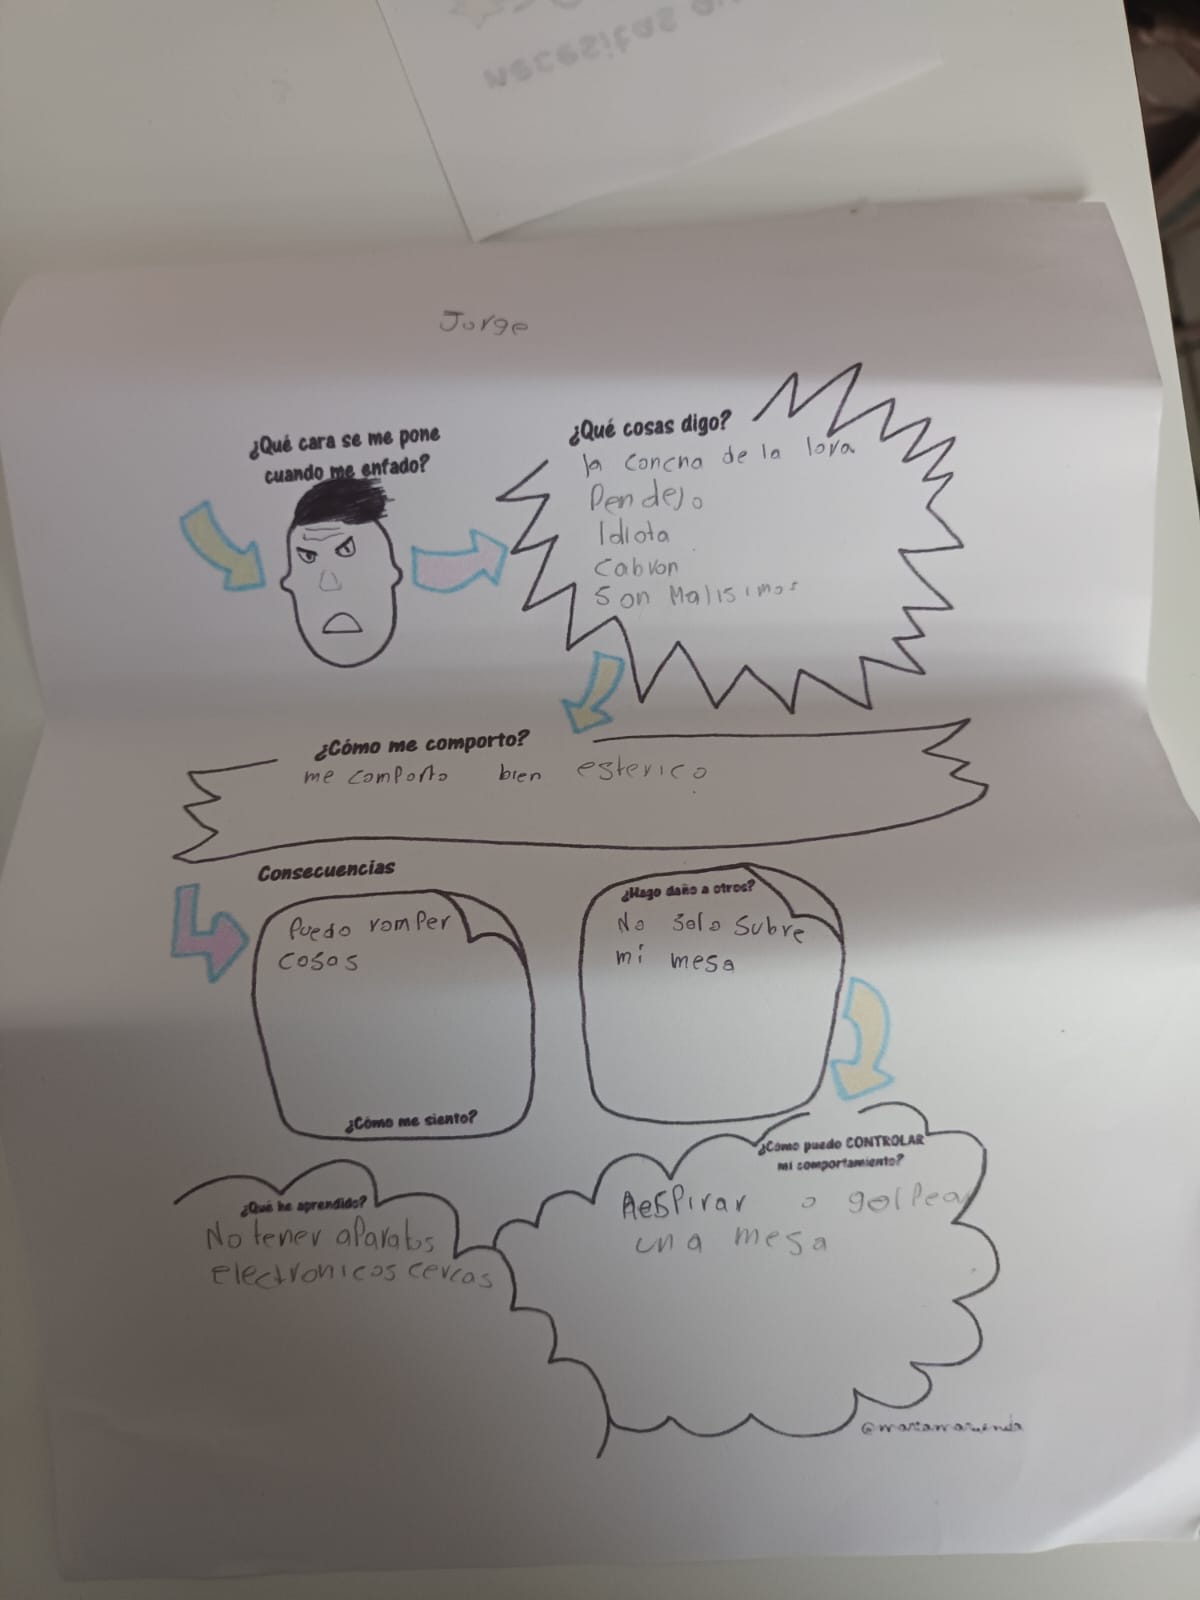 necesitas
Jorge
¿Qué cara se me pone
cuando me enfado?
¿Qué cosas digo?
la concha de la lora
Pendejo
Idiota
cabron
Son Malisimos
¿Cómo me comporto?
me comporto bien esterico
Consecuencias
Puedo romper
cosas
¿Cómo me siento?
¿Hago daño a otros?
No solo Subre
mi mesa
¿Cómo puedo CONTROLAR
mi comportamiento?
Respirar o golpear
una mesa
¿Qué he aprendido?
No tener aparatos
electronicos cercas